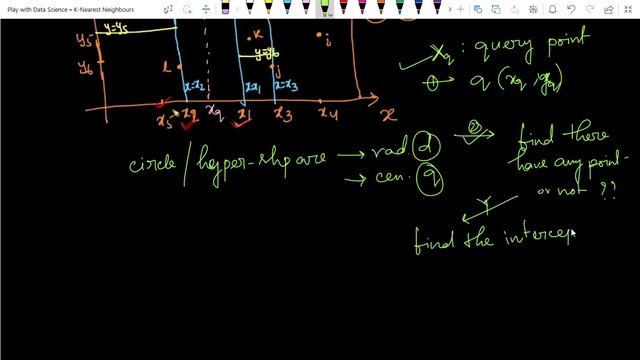 Play with Data Science = K-Nearest Neighbours
y5 y=y5
xq : query point
k i
y=y6
y6 l j
q (xq, yq)
x=x2 x=x1 x=x3
x5 x2 xq x1 x3 x4 x
circle / hyper-shpare → rad. d
② find there
have any point-
→ cen. q
or not ??
Y
find the intercep